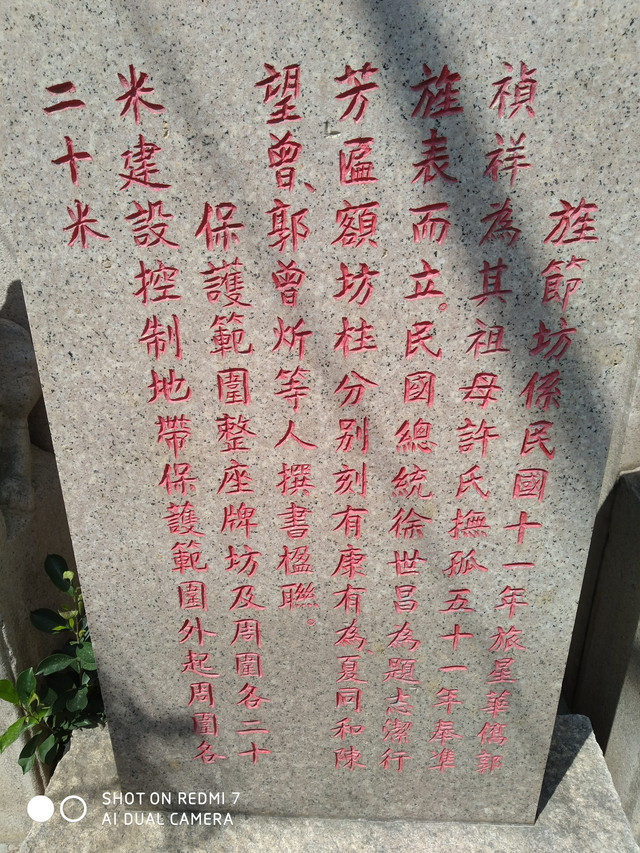 旌節坊係民國十一年旅星華僑郭
禎祥為其祖母許氏撫孤五十一年奉準
旌表而立。民國總統徐世昌為題志潔行
芳匾額坊柱分别刻有康有為夏同和陳
望曾、郭曾炘等人撰書楹聯。
保護範圍整座牌坊及周圍各二十
米建設控制地帶保護範圍外起周圍各
二十米
SHOT ON REDMI 7
AI DUAL CAMERA